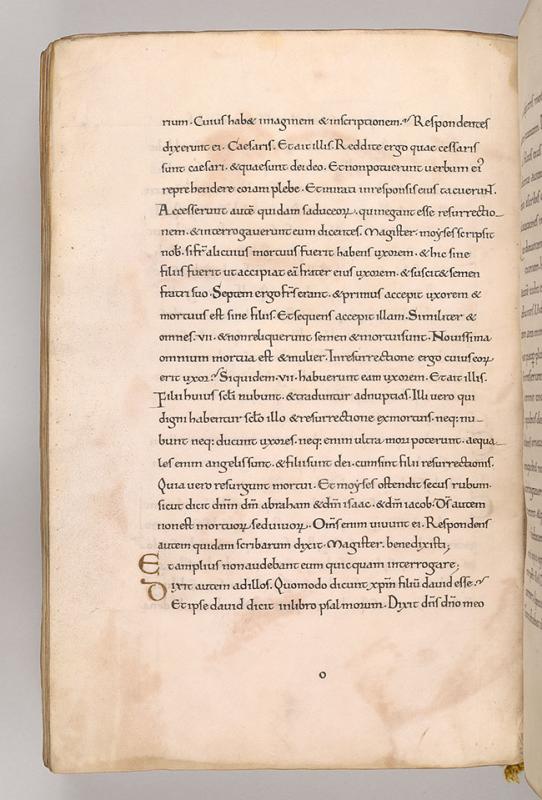 rium. Cuius hab& imaginem & inscriptionem. Respondentes
dixerunt ei. Caesaris. Et ait illis. Reddite ergo quae cessaris
sunt caesari. & quae sunt dei deo. Et non potuerunt uerbum ei᷒
reprehendere coram plebe. Et mirati in responsis eius tacuerunt̃.
Accesserunt autē quidam saduceoꝝ. qui negant esse resurrectio
nem. & interrogauerunt eum dicentes. Magister. moyses scripsit
nob̄. si fr̄ alicuius mortuus fuerit habens uxorem. & hic sine
filiis fuerit ut accipiat eā frater eius uxorem. & suscit& semen
fratri suo. Septem ergo fr̄s erant. & primus accepit uxorem &
mortuus est sine filiis. Et sequens accepit illam. Similiter &
omnes .vii. & non reliquerunt semen & mortui sunt. Nouissima
omnium mortua est & mulier. In resurrectione ergo cuius eoꝝ
erit uxor. Siquidem .vii. habuerunt eam uxorem. Et ait illis.
Filii huius scl̄i nubunt. & traduntur ad nuptias. Illi uero qui
digni habentur scl̄o illo & resurrectione ex mortuis. neq: nu
bunt neq: ducunt uxores. neq: enim ultra mori poterunt. aequa
les enim angelis sunt. & filii sunt dei. cum sint filii resurrectionis.
Quia uero resurgunt mortui. Et moyses ostendit secus rubum.
sicut dicit dnm̄ dm̄ abraham & dm̄ isaac. & dm̄ iacob. Ds̄ autem
non est mortuoꝝ sed uiuoꝝ. Oms̄ enim uiuunt ei. Respondens
autem quidam scribarum dixit. Magister. bene dixisti;
Et amplius non audebant eum quicquam interrogare;
Dixit autem ad illos. Quomodo dicunt xp̄m filiū dauid esse
Et ipse dauid dicit in libro psalmorum. Dixit dn̄s dn̄o meo
o